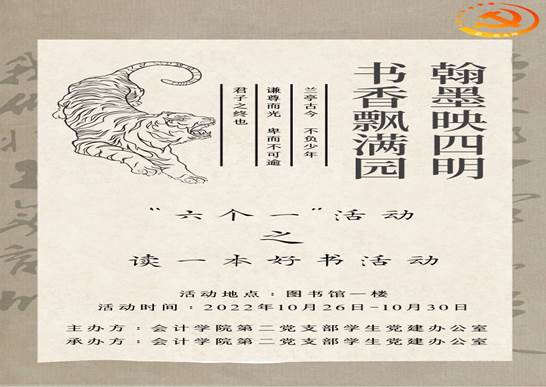 翰墨映四明
书香飘满园
兰亭古今 不负少年
谦尊而光 卑而不可逾
君子之终也
“六个一”活动
之
读一本好书活动
活动地点：图书馆一楼
活动时间：2022年10月26日-10月30日
主办方：会计学院第二党支部学生党建办公室
承办方：会计学院第二党支部学生党建办公室